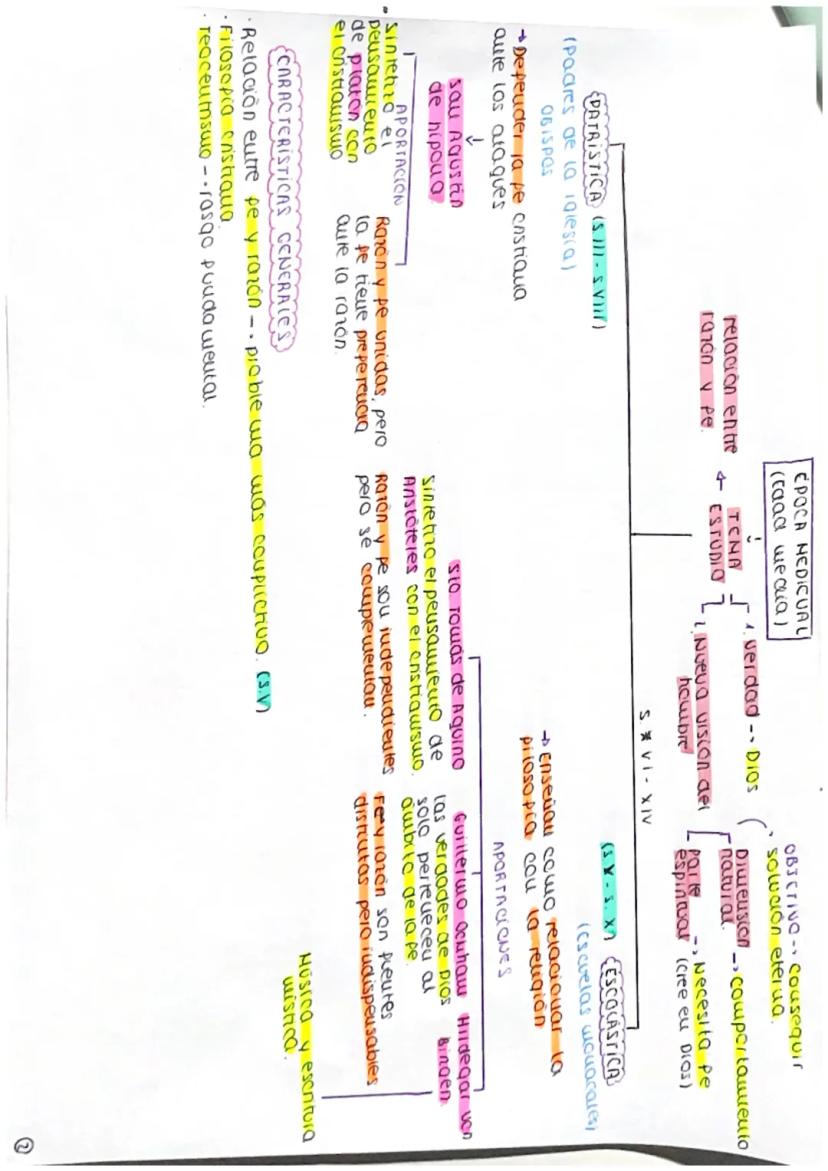 ÉPOCA MEDIEVAL
(Edad media)
TEMA
ESTUDIO
relación entre
razón y fe.
1. verdad → Dios
2. Nueva visión del
hombre
OBJETIVO → conseguir
solución eterna.
Dimensión
natural. → comportamiento
parte
espiritual → Necesita fe
(cree en Dios)
S VI - XIV
PATRÍSTICA (S III - S VIII)
(Padres de la Iglesia)
OBISPOS
→ Defender la fe cristiana
ante los ataques
San Agustín
de Hipona.
APORTACIÓN
Sintetiza el
pensamiento
de platón con
el cristianismo
Razón y fe unidas, pero
la fe tiene preferencia
ante la razón.
(S X - S. X) ESCOLÁSTICA
(Escuelas monacales)
→ Enseñan como relacionar la
filosofía con la religión
APORTACIONES
Sto Tomás de Aquino
Sintetizo el pensamiento de
Aristóteles con el cristianismo.
Razón y fe son independientes
pero se complementan.
Guillermo Ockham
las verdades de Dios
solo pertenecen al
ámbito de la fe.
Fe y razón son fuentes
distintas pero indispensables
Hildegar von
Bingen.
Música y escritura
mística.
CARACTERÍSTICAS GENERALES
· Relación entre fe y razón → problema más conflictivo. (S.V)
· Filosofía cristiana.
· Teocentrismo → rasgo fundamental.
2